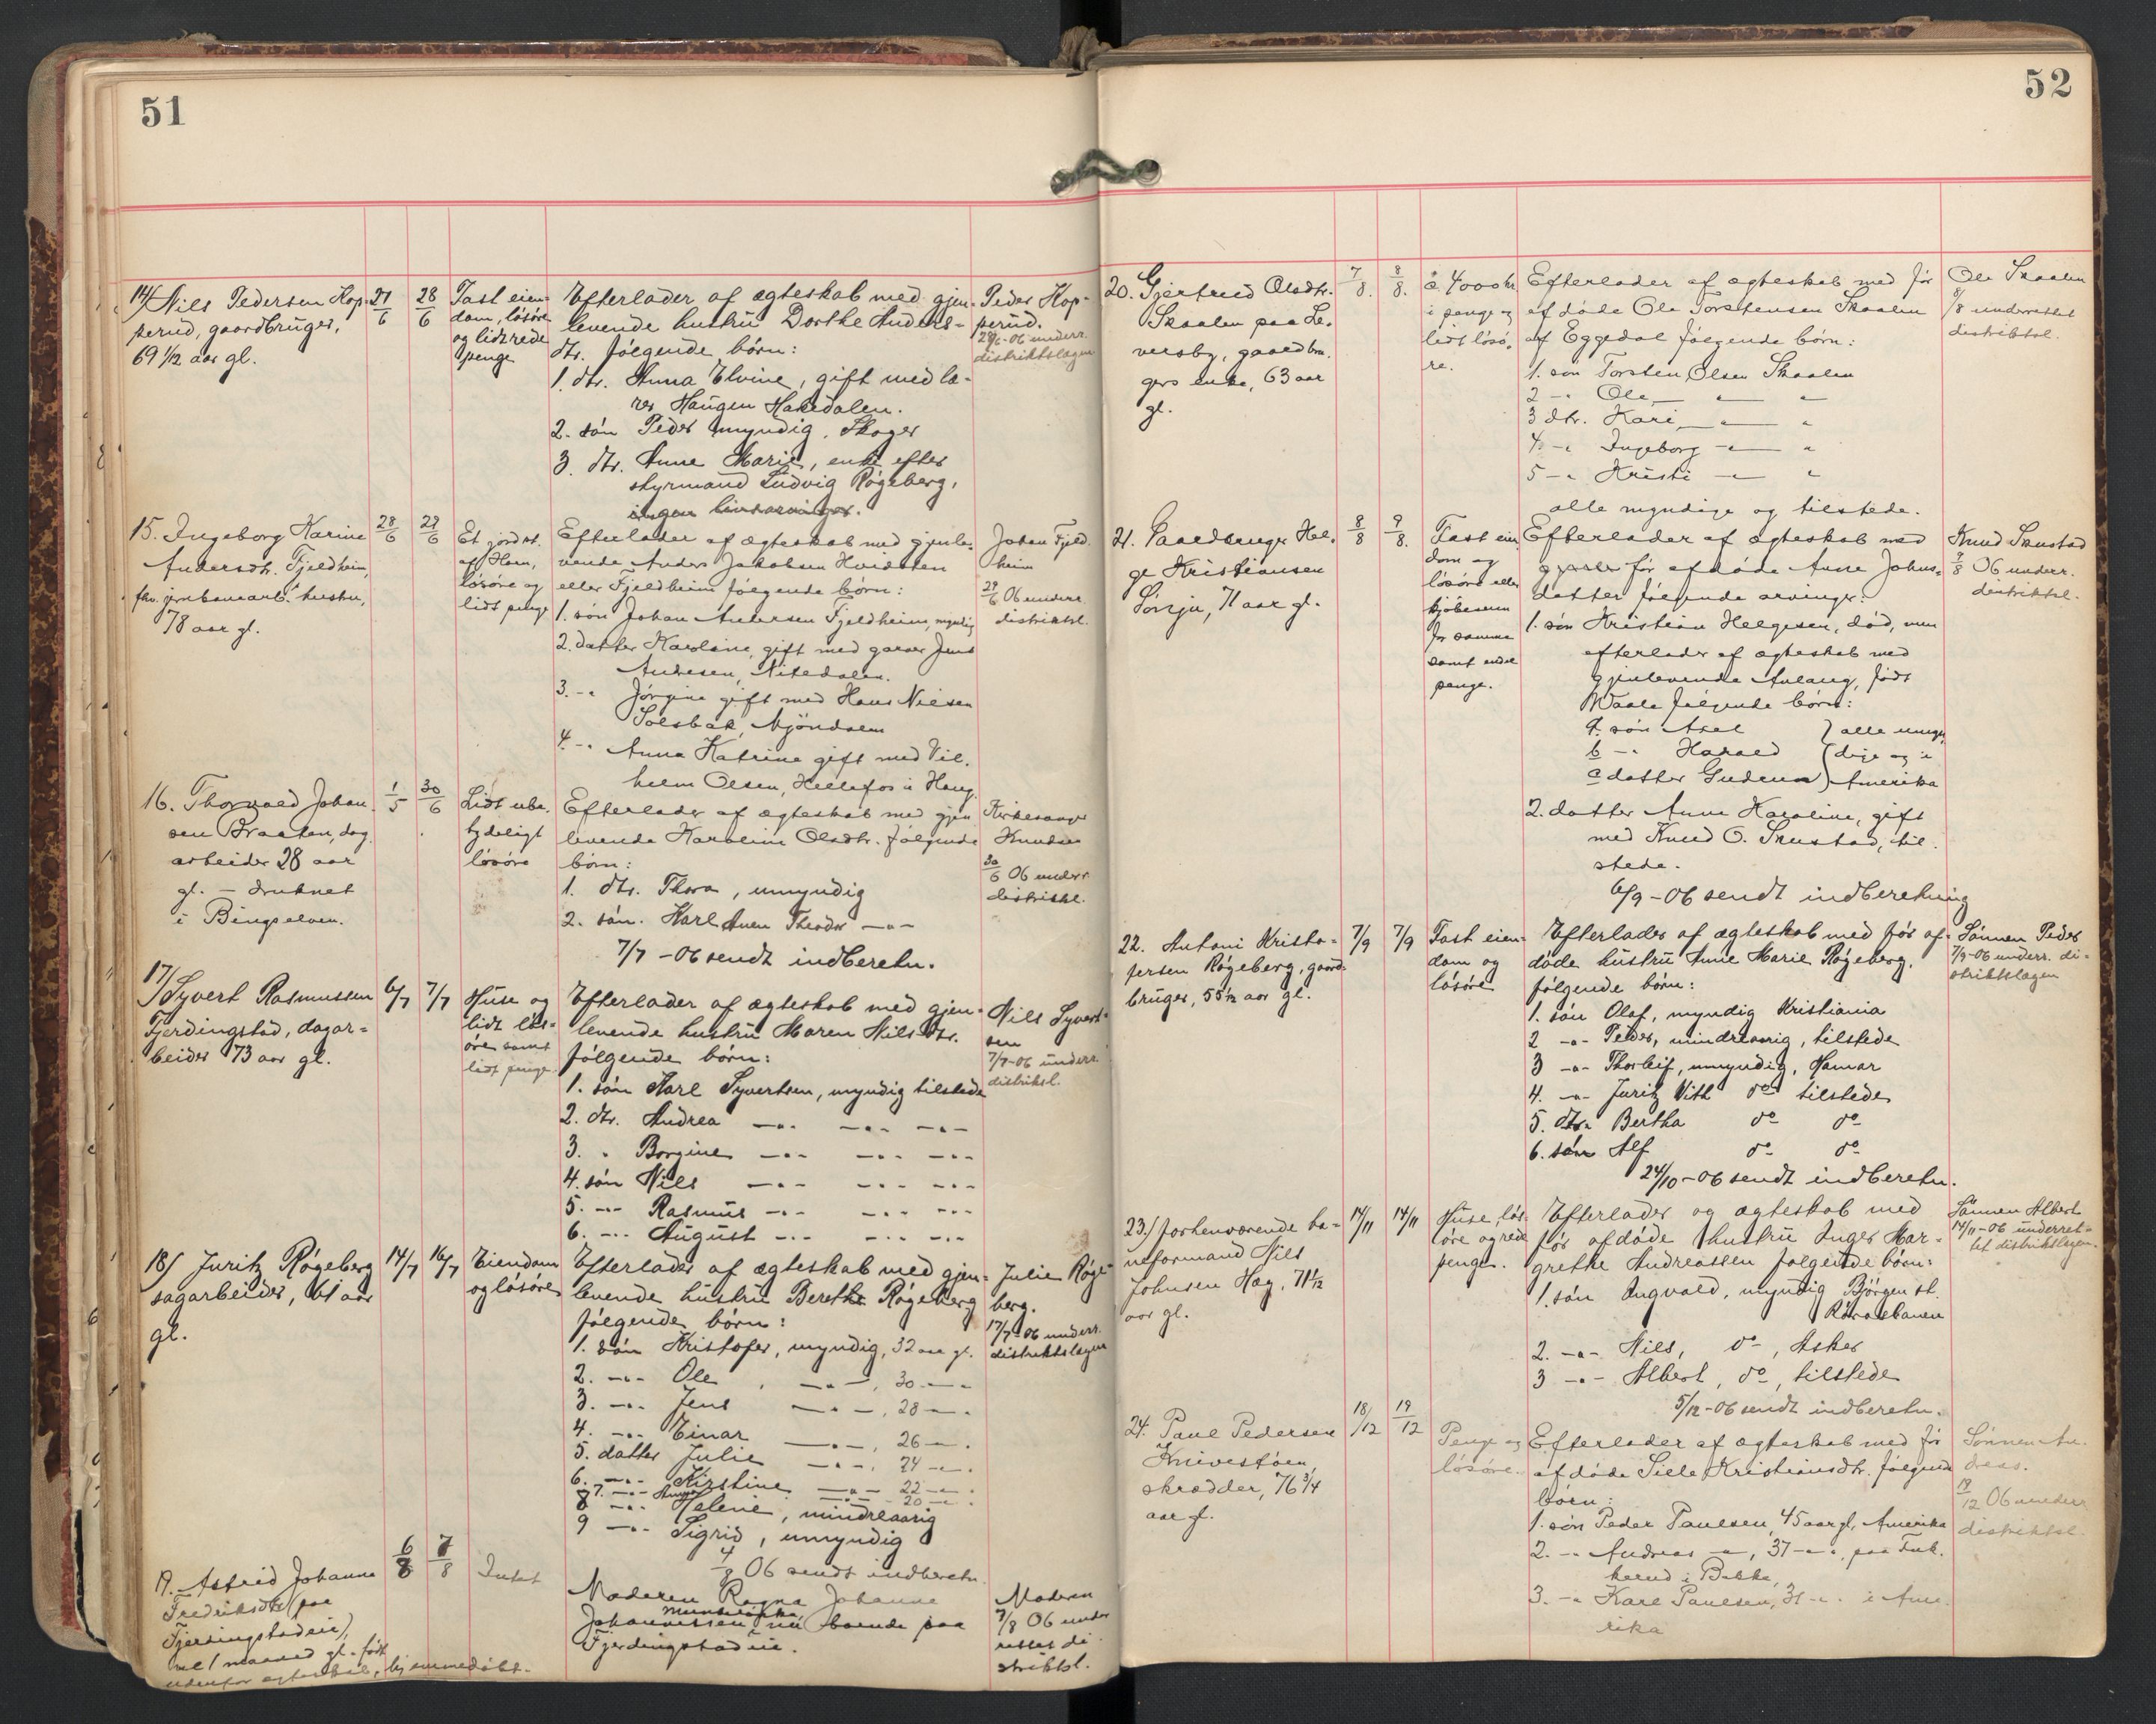 51
14/ Nils Pedersen Hop-
perud, gaardbruger,
69 1/2 aar gl.
27/6
28/6
Fast eien-
dom, løsøre
og lidt rede
penge
Efterlader af ægteskab med gjen-
levende hustru Dorthe Anders-
dtr. følgende børn:
1. dtr. Anna Elvine, gift med læ-
rer Haugen Hakedalen.
2. søn Peder myndig, Skoger
3. dtr. Anne Marie, enke efter
styrmand Ludvig Røgeberg,
ingen livsarvinger.
Peder Hop-
perud.
28/6-06 underr.
distriktslagen
15. Ingeborg Karine
Andersdtr. Fjeldheim,
fhv. jernbanearb. hustru,
78 aar gl.
28/6
29/6
Et jordst.
af Ham,
løsøre og
lidt penge
Efterlader af ægteskab med gjenle-
vende Anders Jakobsen Hvidsten
eller Fjeldheim følgende børn:
1. søn Johan Andersen Fjeldheim, myndig
2. datter Karoline, gift med garver Jens
Andresen, Nitedalen.
3. -" Jørgine gift med Hans Nielsen
Solsbak, Mjøndalen
4. -" Anna Katrine gift med Vil-
helm Olsen, Hellefos i Haug.
Johan Fjeld-
heim
29/6 06 underr.
distriktsl.
16. Thorvald Johan-
sen Braaten, dag-
arbeider 28 aar
gl. - druknet
i Bingselven.
1/5
30/6
Lidt ube-
tydeligt
løsøre
Efterlader af ægteskab med gjen-
levende Karoline Olsdtr. følgende
børn:
1. dtr. Thora, umyndig
2. søn. Karl Theodor -"-
7/7 -06 sendt indberetn.
Kirkesanger
Knudsen
30/6 06 underr.
distriktsl.
17/ Syvert Rasmussen
Fjerdingstad, dagar-
beider 73 aar gl.
6/7
7/7
Huse og
lidt løs-
øre samt
lidt penge
Efterlader af ægteskab med gjen-
levende hustru Maren Nilsdtr.
følgende børn:
1. søn Karl Syvertsen, myndig tilstede
2. dtr. Andrea -"- -"- -"-
3. " Borgine -"- -"- -"-
4. søn Nils -"- -"- -"-
5. -"- Rasmus -"- -"- -"-
6. -"- August -"- -"- -"-
Nils Syvert-
sen
7/7-06 underr.
distriktsl.
18/ Juritz Røgeberg
sagarbeider, 61 aar
gl.
14/7
16/7
Eiendom
og løsøre
Efterlader af ægteskab med gjen-
levende hustru Berethe Røgeberg
følgende børn:
1. søn Kristofer, myndig, 32 aar gl.
2. -"- Ole, -"-, 30 -"-
3. -"- Jens -"-, 28 -"-
4. -"- Einar -"-, 26 -"-
5. datter Julie -"-, 24 -"-
6. -"- Kirstine -"- 22 -"-
7. -"- Anna -"- 20 -"-
8 -"- Helene, mindreaarig
9 -"- Sigrid, umyndig
4/8 06 sendt indberetn.
Julie Røge-
berg.
17/7-06 underr.
distriktslagen
19. Astrid Johanne
Fredriksdtr (paa
Fjerdingstadeie),
1 maaned gl. født
udenfor ægteskab, hjemmedøbt.
6/8
7/8
Intet
Moderen Ragna Johanne
Johannessen nu boende paa
Fjerdingstadeie.
Moderen
7/8 06 under-
rettet di-
striktsl.
52
20. Gjertrud Olsdtr.
Skaalen paa Le-
versby, gaardbru-
gers enke, 63 aar
gl.
7/8.
8/8.
à 4000 kr.
i penge og
lidt løsø-
re.
Efterlader af ægteskab med før
afdøde Ole Torstensen Skaalen
af Eggedal følgende børn:
1. søn Torsten Olsen Skaalen
2 -" Ole -"- "
3 dtr. Kari -"- "
4 -" Ingeborg -"- "
5 -" Kristi -"- "
alle myndige og tilstede.
Ole Skaalen
8/8 underrettet
distriktsl.
21. Gaardbruger Hel-
ge Kristiansen
Sønju, 71 aar gl.
8/8
9/8.
Fast eien-
dom og
løsøre eller
kjøbesum
for samme
samt endel
penge.
Efterlader af ægteskab med
før afdøde Anne Johns-
datter følgende arvinger:
1. søn Kristian Helgesen, død, men
efterlader af ægteskab med
gjenlevende Aslaug, født
Waale følgende børn:
a. søn Axel } alle umyn-
b -" Harald } dige og i
c datter Gudrun } Amerika
2. datter Anne Karoline, gift
med Knud O. Skustad, til-
stede.
6/9 -06 sendt indberetning
Knud Skustad
9/8 06 underr.
distriktsl.
22. Antoni Kristo-
fersen Røgeberg, gaard-
bruger, 55 1/2 aar gl.
7/9
7/9
Fast eien-
dom og
løsøre
Efterlader af ægteskab med før af-
døde hustru Anne Marie Røgeberg.
følgende børn:
1. søn Olaf, myndig Kristiania
2 -"- Peder, mindreaarig, tilstede
3 -"- Thorleif, umyndig, Hamar
4. -"- Juritz Vith do tilstede
5. dtr. Bertha do do
6. søn Alf do do
24/10-06 sendt indberetn.
Sønnen Peder
7/9-06 underr. di-
striktslagen
23/ forhenværende ba-
neformand Nils
Johnsen Hag, 71 1/12
aar gl.
14/11
14/11
Huse, løs-
øre og rede
penge.
Efterlader og ægteskab med
før afdøde hustru Inger Mar-
grethe Andreassen følgende børn:
1. søn Ingvald, myndig Bjørgen st.
Rørosbanen
2. -"- Nils, do, Asker
3 -"- Albert, do, tilstede
5/12-06 sendt indberetn.
Sønnen Albert
14/11-06 underret-
tet distriktslagen.
24. Paul Pedersen
Knivestøen,
skrædder, 76 3/4
aar gl.
18/12
19/12
Penge og
løsøre.
Efterlader af ægteskab med før
afdøde Siele Kristiansdtr. følgende
børn:
1. søn Peder Paulsen, 45 aar gl., Amerika
2. -" Andreas -"-, 37 -" ", paa
i Bakke,
3. -" Karl Paulsen, 31 -" " i Ame-
rika
Sønnen An-
dreas.
19/12 06 underr.
distriktsl.